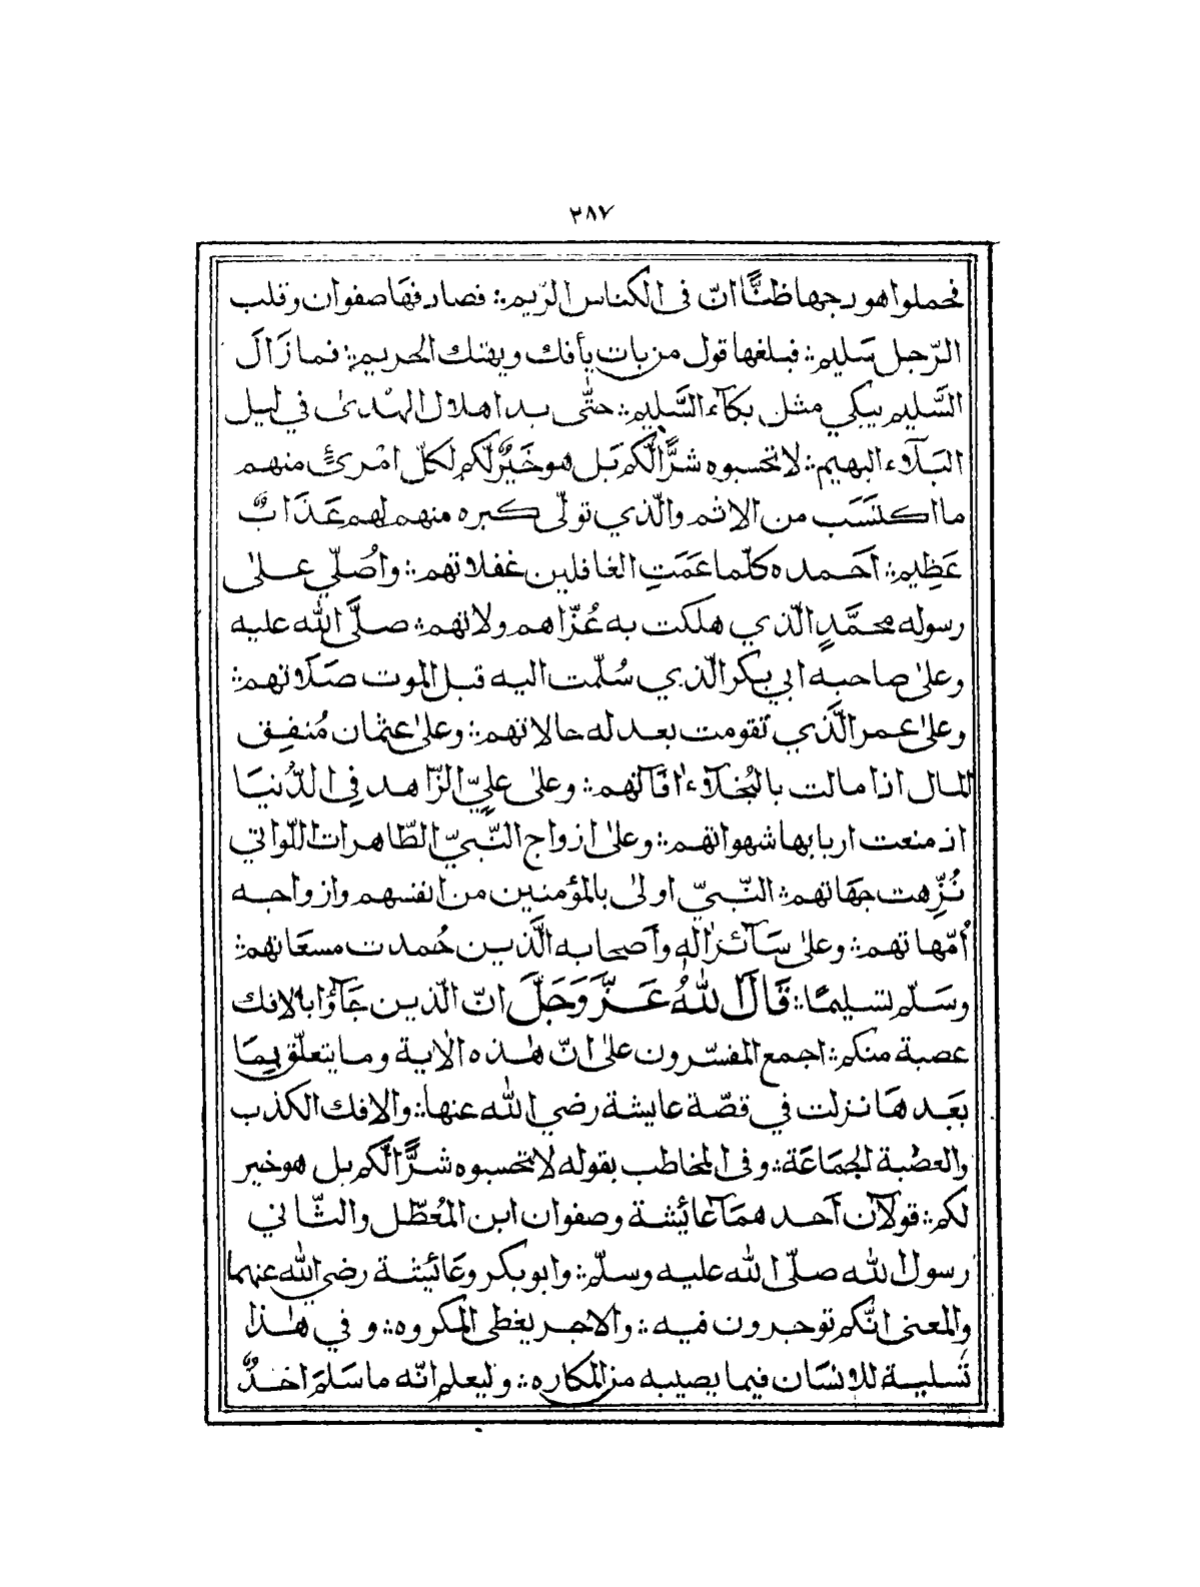 ٣٨٧
فحملوا هودجها ظنًّا انّ فى الكناس الرّيم؞ فصادفهَا صفوان وقلب
الرّجل سَليم؞ فبلغها قول من بات يأفك ويهتك الحريم؞ فما زَالَ
السَّليم يبكي مثل بكآء السَّليم؞ حتّى بدا هلال الهُدىٰ في ليل
البَلآء البهيم؞ لا تحسبوه شرًّا لّكم بَل هو خَيرٌ لّكم لكلّ امْرئٍ منهم
ما اكتسَبَ من الاثم والّذي تولّى كبره منهم لهم عَذَابٌ
عَظِيم؞ اَحَمده كلّما عَمَتِ الغافلين غفلاتهم؞ واُصلّي علىٰ
رسوله محمَّدٍ الّذي هلكت به عُزّاهم ولاتهم؞ صلَّى الله عليه
وعلىٰ صاحبه ابي بكر الّذي سُلّمت اليه قبل الموت صَلَاتهم؞
وعلىٰ عمر الَّذي تقومت بعدله حالاتهم؞ وعلىٰ عثمان مُنفِق
المال اذا مالت بالبُخَلآء اٰفاتهم؞ وعلىٰ عليٍّ الزّاهد فِي الدُّنيَا
اذ منعت اربابها شهواتهم؞ وعلىٰ ازواج النَّبيّ الطّاهرات اللّواتي
نُزِّهت جهَاتهم؞ النَّبيّ اولىٰ بالمؤمنين من انفسهم وازواجه
اُمّهاتهم؞ وعلىٰ سَآئر اٰله وأصحابه الَّذين حُمدت مسعَاتهم؞
وسَلّم تسليمًا؞ قَالَ اللهُ عَزَّ وَجَلَّ انّ الّذين جَآؤا بالافك
عصبة منكم؞ اجمع المفسّرون علىٰ انّ هٰذه الاٰية وما يتعلّق بِمَا
بَعدهَا نزلت في قصّة عايشة رضي الله عنها؞ والافك الكذب
والعصْبة الجمَاعَة؞ وفى المخاطب بقوله لا تحسبوه شرًّا لّكم بل هو خير
لكم؞ قولان أحدهمَا عَائِشة وصفوان ابن المُعطّل والثّاني
رسول الله صلّى الله عليه وسلّم؞ وابوبكر وعَائِشة رضي الله عنهما
والمعنى انّكم توجرون فيه؞ والاجر يغطى المكروه؞ وفي هٰذا
تَسلية للانسَان فيما يصيبه من المكاره؞ وليعلم انّه ما سَلمَ احَدٌ